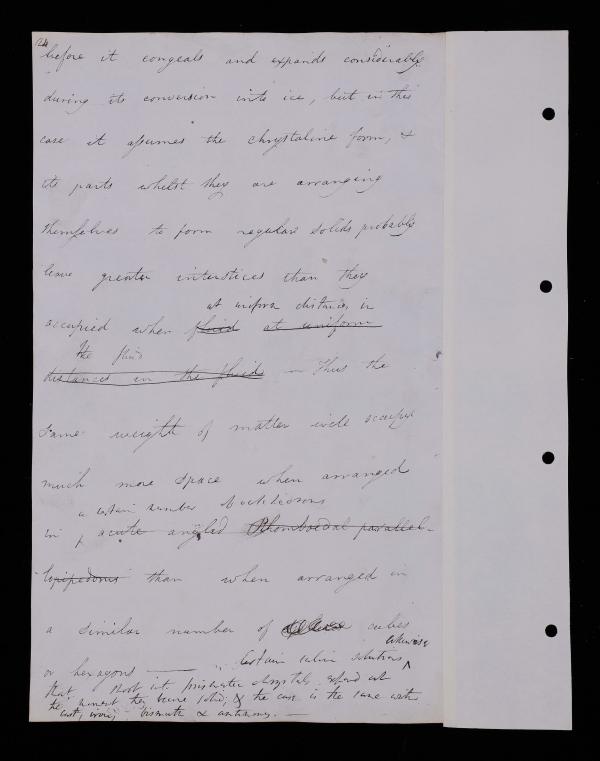 124
before it congeals and expands considerably
during its conversion into ice, but in this
case it assumes the chrystaline form, &
its parts whilst they are arranging
themselves to form regular solids probably
leave greater interstices than they
at uniform distances in
occupied when fluid at uniform
the fluid
distances in the fluid — Thus the
same weight of matter will occupy
much more space when arranged
a certain number of octahedrons
in acute angled Rhomboedal parallel-
-lopipedons than when arranged in
a similar number of cubes
likewise
or hexagons — Certain saline solutions
that shoot into prismatic chrystals expand at
the moment they become solid, & the case is the same with
cast iron, bismuth & antimony. —